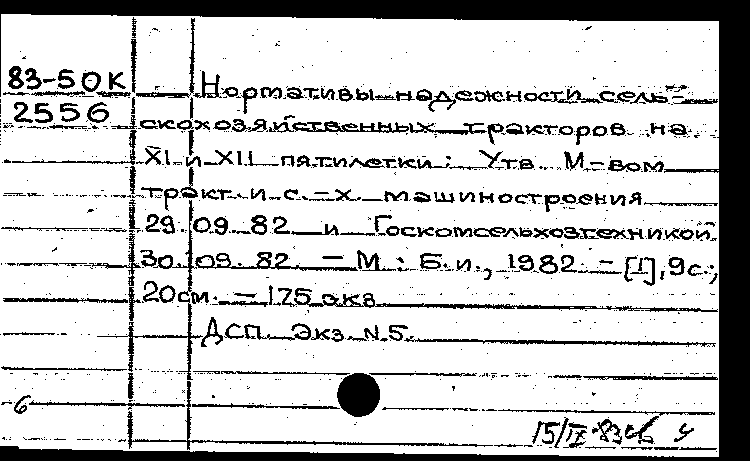 83-50К
2556
Нормативы надежности сель-
скохозяйственных тракторов на
XI и XII пятилетки: Утв. М-вом
тракт. и с.-х. машиностроения
29.09.82 и Госкомсельхозтехникой
30.09.82. - М.: Б.и., 1982. - [1], 9с.;
20см. - 175 экз.
ДСП. Экз. N 5.
6
15/IX-83